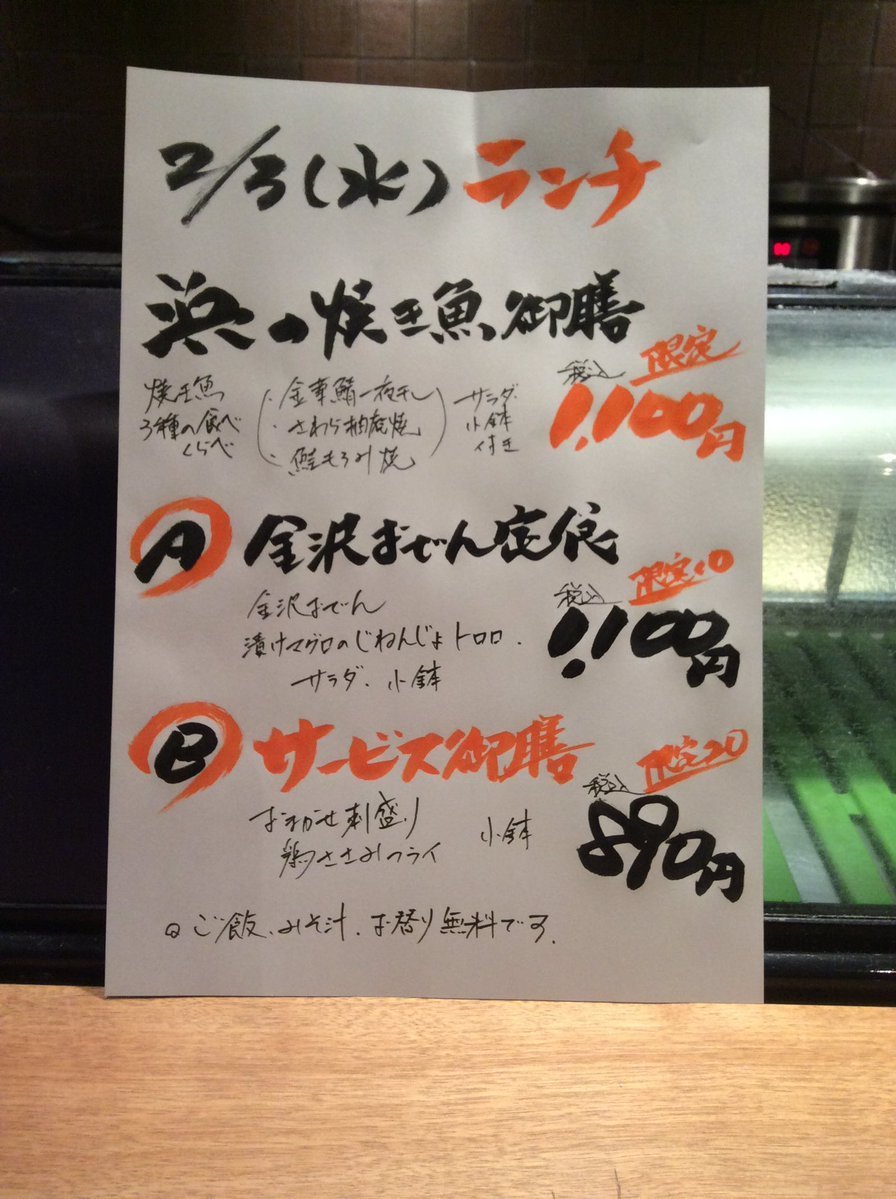 2/3(水)ランチ
浜の焼き魚御膳
限定
税込
1,100円
焼き魚
3種の食べ
くらべ
・金華鯖一夜干し
・さわら柚庵焼
・鮭もろみ焼
サラダ
小鉢
付き
A 金沢おでん定食
限定10
税込
1,100円
金沢おでん
漬けマグロのじねんじょトロロ.
サラダ. 小鉢
B サービス御膳
限定20
税込
890円
おまかせ刺盛り
鶏ささみフライ
小鉢
ご飯、みそ汁、お替り無料です.